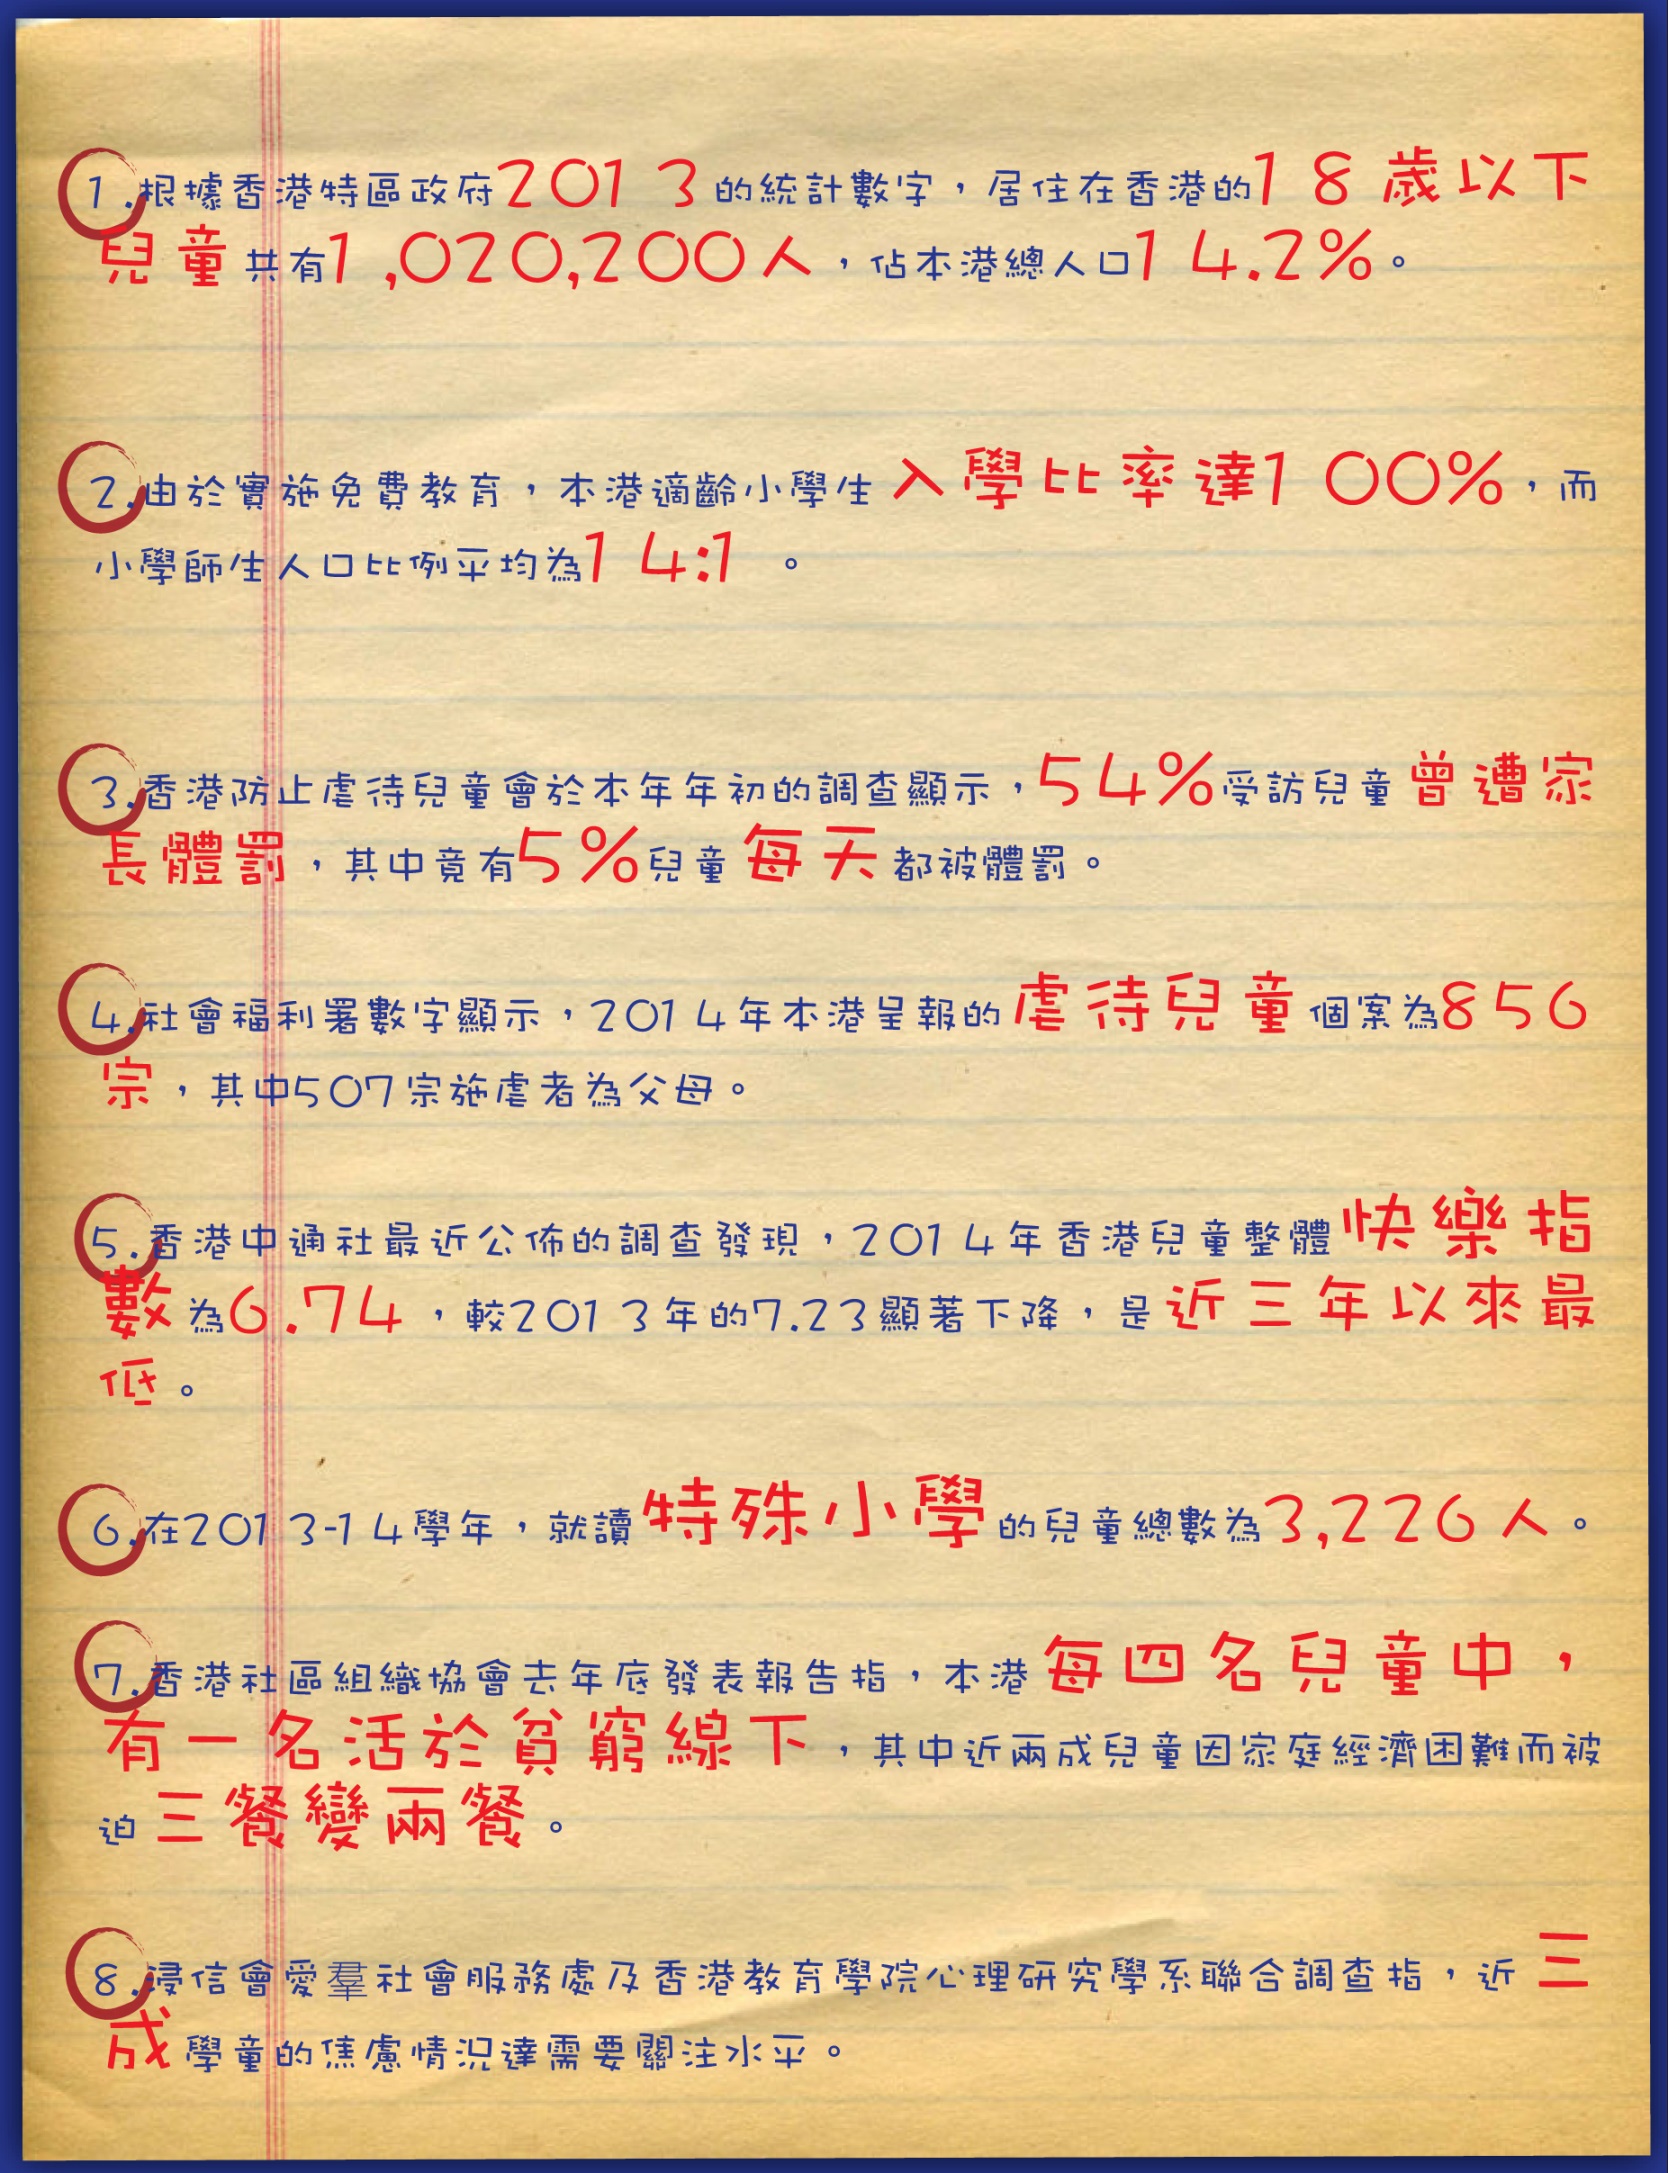 1.根據香港特區政府2013的統計數字，居住在香港的18歲以下
兒童共有1,020,200人，佔本港總人口14.2%。
2.由於實施免費教育，本港適齡小學生入學比率達100%，而
小學師生人口比例平均為14:1 。
3.香港防止虐待兒童會於本年年初的調查顯示，54%受訪兒童曾遭家
長體罰，其中竟有5%兒童每天都被體罰。
4.社會福利署數字顯示，2014年本港呈報的虐待兒童個案為856
宗，其中507宗施虐者為父母。
5.香港中通社最近公佈的調查發現，2014年香港兒童整體快樂指
數為6.74，較2013年的7.23顯著下降，是近三年以來最
低。
6.在2013-14學年，就讀特殊小學的兒童總數為3,226人。
7.香港社區組織協會去年底發表報告指，本港每四名兒童中，
有一名活於貧窮線下，其中近兩成兒童因家庭經濟困難而被
迫三餐變兩餐。
8.浸信會愛羣社會服務處及香港教育學院心理研究學系聯合調查指，近三
成學童的焦慮情況達需要關注水平。